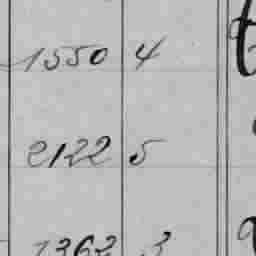 1550 4
2122 5
1362 3